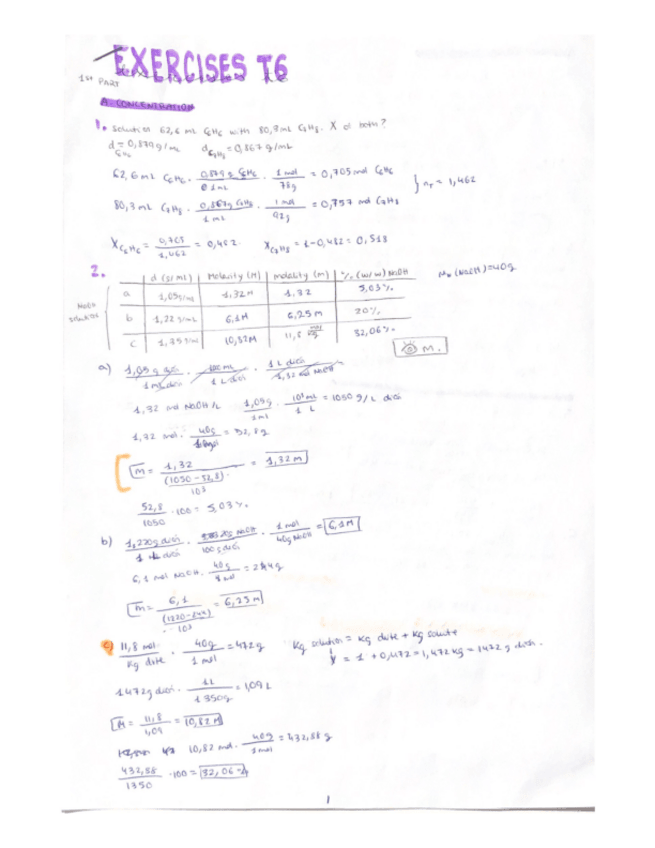 EXERCISES T6
1ST PART
A. CONCENTRATION
1. Solution 62,6 mL C6H6 with 80,3mL C7H8. X of both?
d = 0,879 g/mL dC7H8 = 0,867 g/mL
C6H6
62,6 mL C6H6 · 0,879 g C6H6 / 1mL · 1 mol / 78g = 0,705 mol C6H6
80,3mL C7H8 · 0,867g C7H8 / 1 mL · 1 mol / 92g = 0,757 mol C7H8
} nT = 1,462
XC6H6 = 0,705 / 1,462 = 0,482 XC7H8 = 1-0,482 = 0,518
2.
d (g/mL) Molarity (M) molality (m) % (w/w) NaOH
Mm (NaOH)=40g
NaOH solution
a 1,05g/mL 1,32M 1,32 5,03%
b 1,22 g/mL 6,1M 6,25 m 20%
c 1,35 g/mL 10,82M 11,8 mol/kg 32,06%
m.
a) 1,05 g dis / 1 mL dis · mL / 1 L dis · 1 L dis / 1,32 NaOH
1,32 mol NaOH/L 1,05g / 1mL · 10³mL / 1 L = 1050 g/L dis
1,32 mol · 40g / mol = 52,8g
m = 1,32 / (1050-52,8) / 10³ = 1,32 m
52,8 / 1050 · 100 = 5,03%
b) 1,220g dis / 1 dis · 20g NaOH / 100g dis · 1 mol / 40g NaOH = 6,1M
6,1 mol NaOH · 40g / mol = 244g
m = 6,1 / (1220-244) / 10³ = 6,25m
c) 11,8 mol / Kg dlte · 40g / 1 mol = 472g Kg solution = Kg dlte + Kg solute
= 1 + 0,472 = 1,472 kg = 1472 g
1472g · 1L / 1350g = 1,09 L
M = 11,8 / 1,09 = 10,82 M
10,82 mol · 40g / 1 mol = 432,88 g
432,88 / 1350 · 100 = 32,06%
1